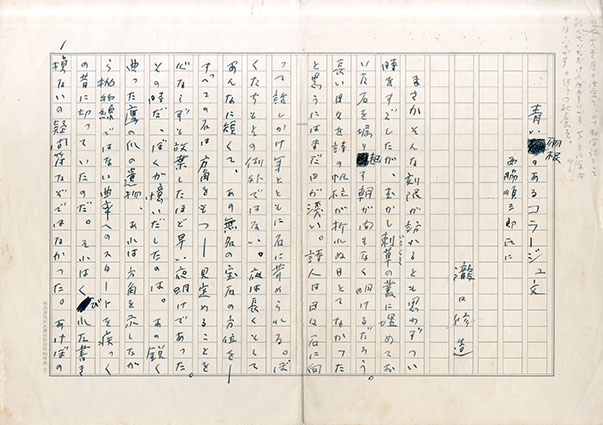 青い羽根のあるコラージュ文
西脇順三郎氏に
瀧口修造
まさかそんな刻限が訪れるとも思わずつい
時をすごしたが、むかし刺草の叢に埋めてお
いた石を掘り起す朝が間もなく明けるだろう。
長い日々を詩の帆柱が折れぬ日とてなかった
と思うにはまだ日が浅い。詩人は日々石に向
って話しかけ年とともに石に葬められる。ぼ
くたちとその例外ではない。夜は長くとして
あんなに短くて、あの無数の宝石の方位を―
すべての石は方角をもつ―見定めることを
心ならずも放棄したほど早い夜明けであった。
その時だ、ぼくが憶いだしたのは。あの鋭く
曲った鷹の爪の遺物、あれは方角を示しなが
ら抛物線ではない曲率へのスタートを疾っく
の昔に切っていたのだ。それはくびれた書き
損ないの疑問符などではなかった。あけぼの
1